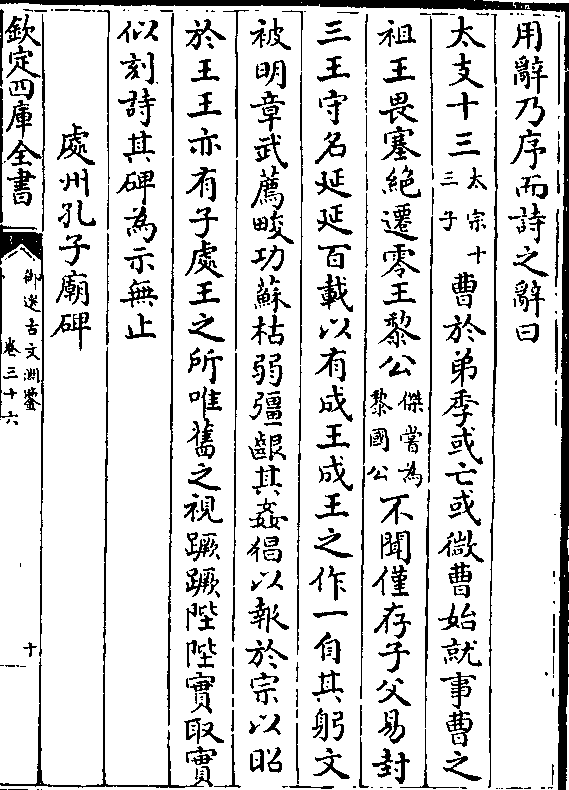 用辭乃序而詩之辭曰
太支十三太宗十三子曹於弟季或亡或微曹始就事曹之
祖王畏塞絶遷零王黎公傑嘗為黎國公不聞僅存子父易封
三王守名延延百載以有成王成王之作一自其躬文
被明章武薦畯功蘇枯弱彊齦其姦猖以報於宗以昭
於王王亦有子處王之所唯舊之視蹶蹶陛陛實取實
似刻詩其碑為示無止
處州孔子廟碑
欽定四庫全書
御選古文淵鑒
卷三十六
十